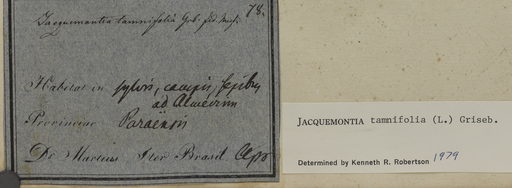 78.
Jacquemontia tamnifolia Grb. fid. Meisn.
Habitat in sylvis, campis, sepibus
ad Almeirim
Provinciae Paraënsis
Dr. Martius Iter Brasil.
JACQUEMONTIA tamnifolia (L.) Griseb.
Determined by Kenneth R. Robertson 1979